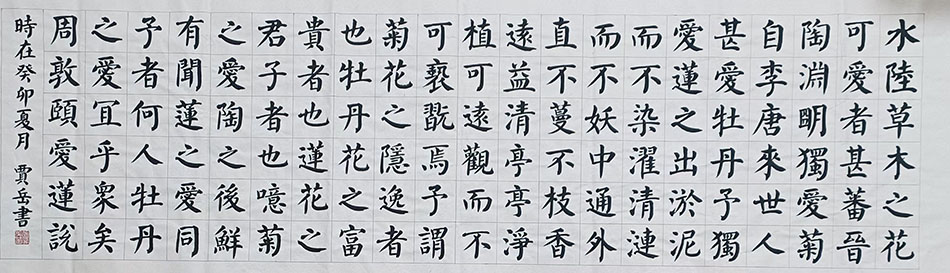 水陸草木之花
可愛者甚蕃晉
陶淵明獨愛菊
自李唐來世人
甚愛牡丹予獨
愛蓮之出淤泥
而不染濯清漣
而不妖中通外
直不蔓不枝香
遠益清亭亭淨
植可遠觀而不
可褻翫焉予謂
菊花之隱逸者
也牡丹花之富
貴者也蓮花之
君子者也噫菊
之愛陶之後鮮
有聞蓮之愛同
予者何人牡丹
之愛冝乎衆矣
周敦頤愛蓮說
時在癸卯夏月 賈岳書